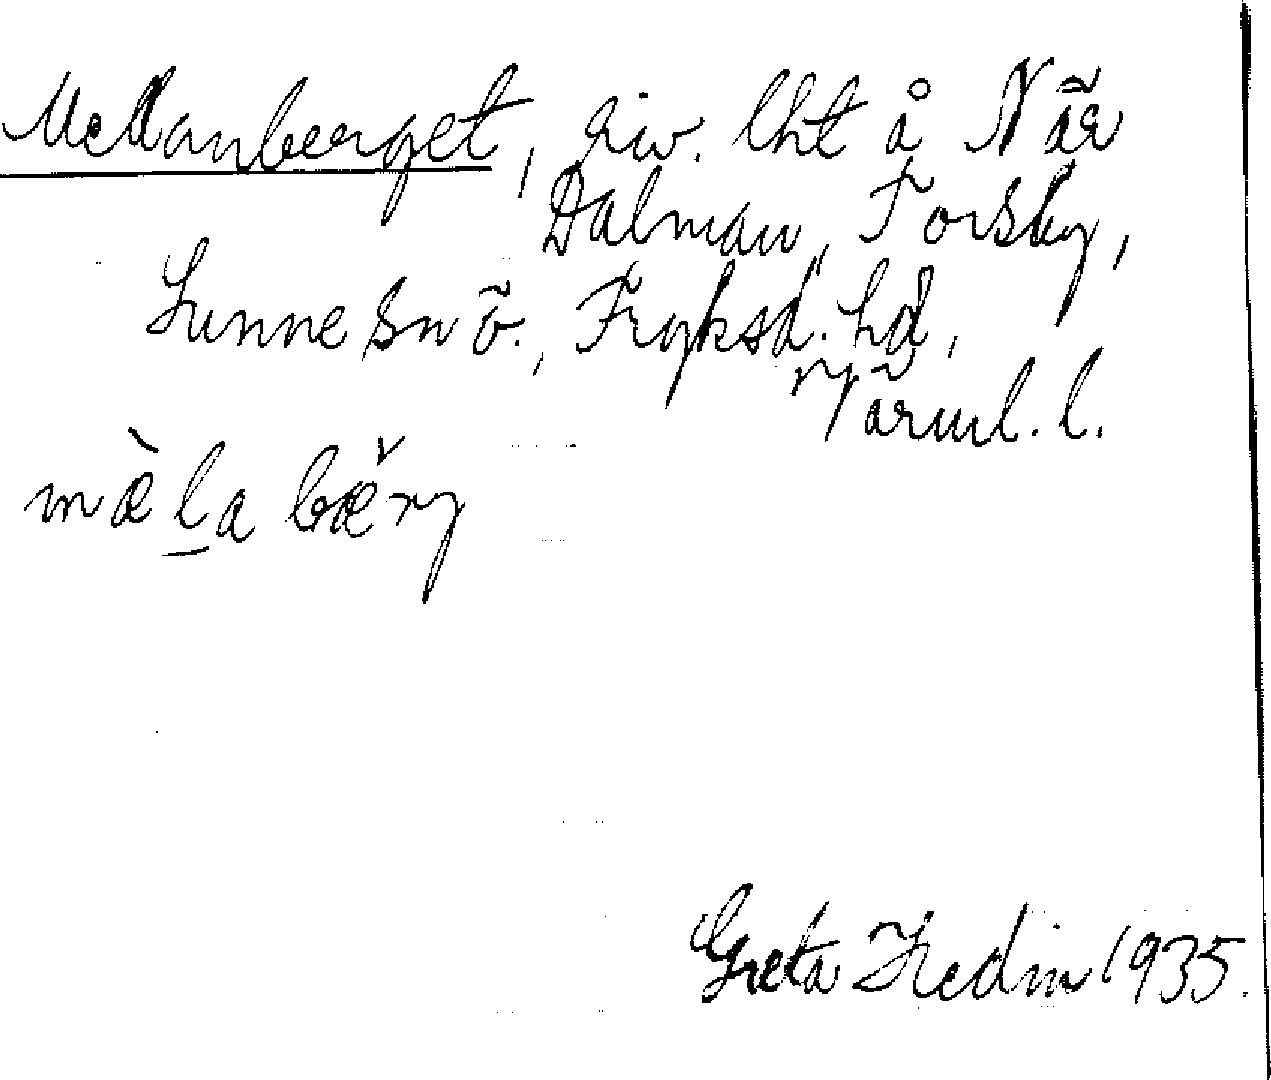 Mellanberget, riv. lht å När
Dalman, Forsby,
Sunne sn ö., Fryksd. hd,
Värml. l.
mæ̀l̠a bæ̌rj
Greta Hedin 1935.